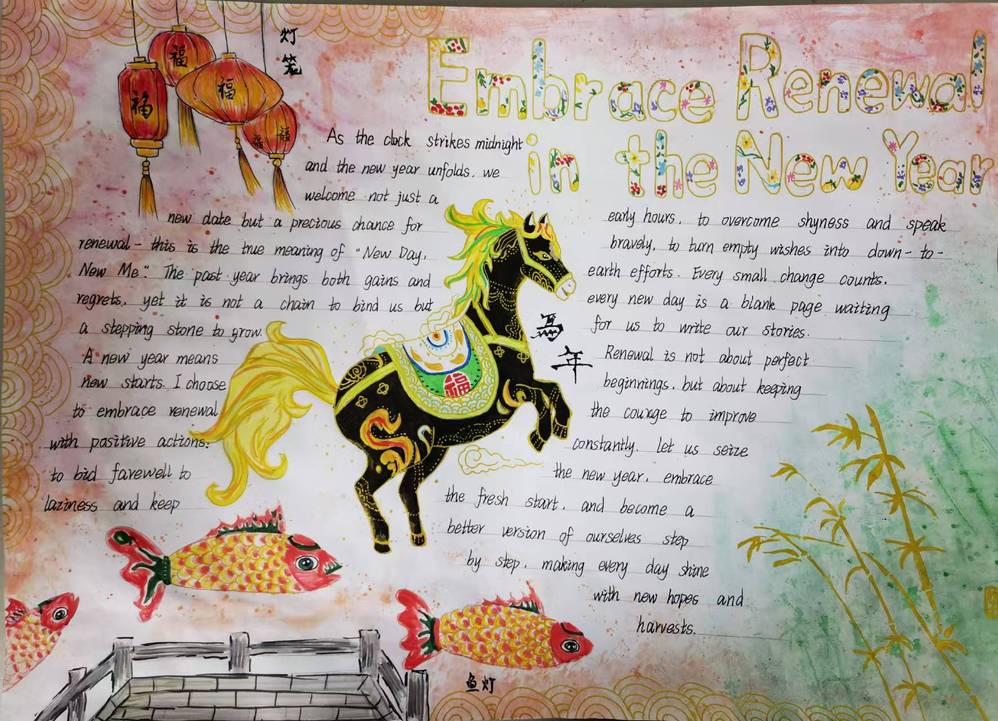 灯笼
福
福
福
福
Embrace Renewal
in the New Year
As the clock strikes midnight
and the new year unfolds, we
welcome not just a
new date but a precious chance for
renewal - this is the true meaning of "New Day,
New Me." The past year brings both gains and
regrets, yet it is not a chain to bind us but
a stepping stone to grow.
A new year means
new starts. I choose
to embrace renewal
with positive actions:
to bid farewell to
laziness and keep
early hours, to overcome shyness and speak
bravely, to turn empty wishes into down-to-
earth efforts. Every small change counts,
every new day is a blank page waiting
for us to write our stories.
Renewal is not about perfect
beginnings, but about keeping
the courage to improve
constantly. Let us seize
the new year, embrace
the fresh start, and become a
better version of ourselves step
by step, making every day shine
with new hopes and
harvests.
马年
福
鱼灯